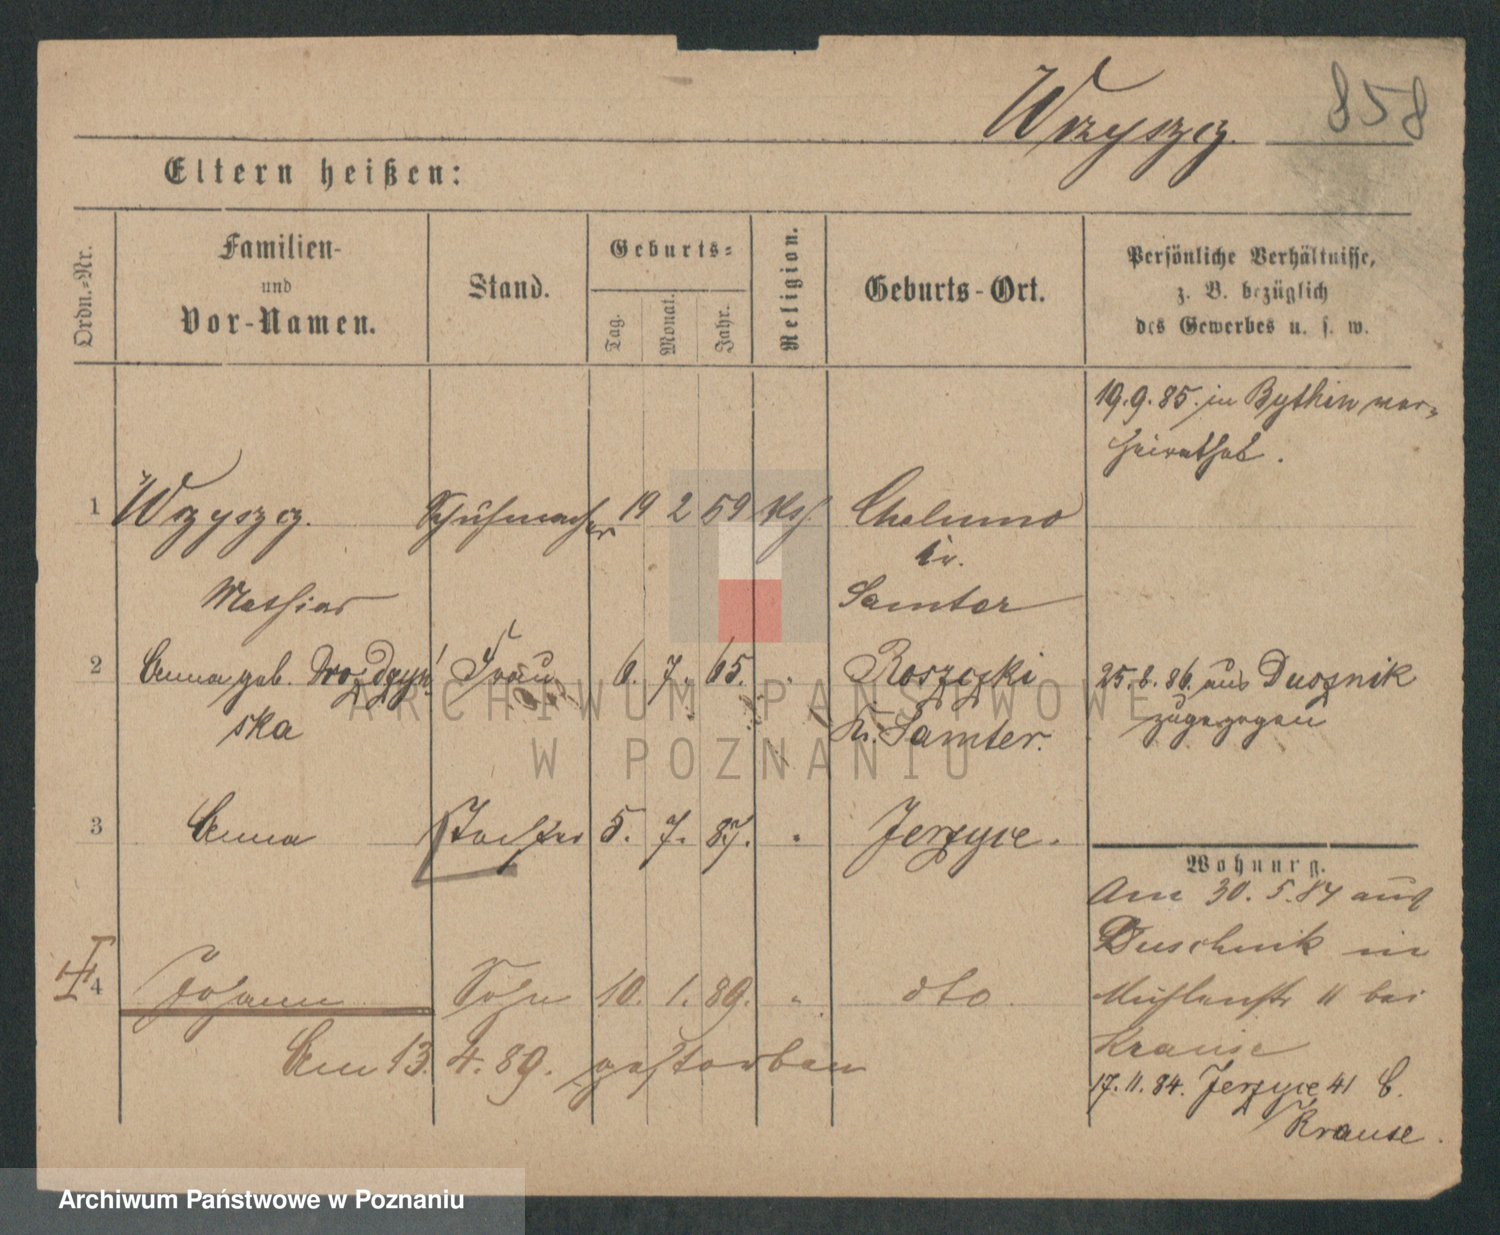 Wrzyszcz.
858
Eltern heißen:
Ordn.-Nr.
Familien-
und
Vor-Namen.
Stand.
Geburts-
Tag.
Monat.
Jahr.
Religion.
Geburts-Ort.
Persönliche Verhältnisse,
z. B. bezüglich
des Gewerbes u. s. w.
19.9.85. in Bythin ver-
heirathet.
1 Wrzyszcz. Schuhmacher 19 2 59 kth. Chelmno
Kr.
Mathias Samter
2 Anna geb. Drozdzyn- Frau 6. 7. 65. " Roszczki 25.6.86. aus Dusznik
ska Kr. Samter. zugezogen
3 Anna Tochter 5. 7. 87. " Jerzyce.
Wohnung.
Am 30.5.84 aus
Duschnik in
4 Johann Sohn 10. 1. 89. " dto. Mühlenstr 11 bei
Krause
Am 13. 4. 89. gestorben
17.11.84. Jerzyce 41 b.
Krause.
ARCHIWUM PAŃSTWOWE
W POZNANIU
Archiwum Państwowe w Poznaniu